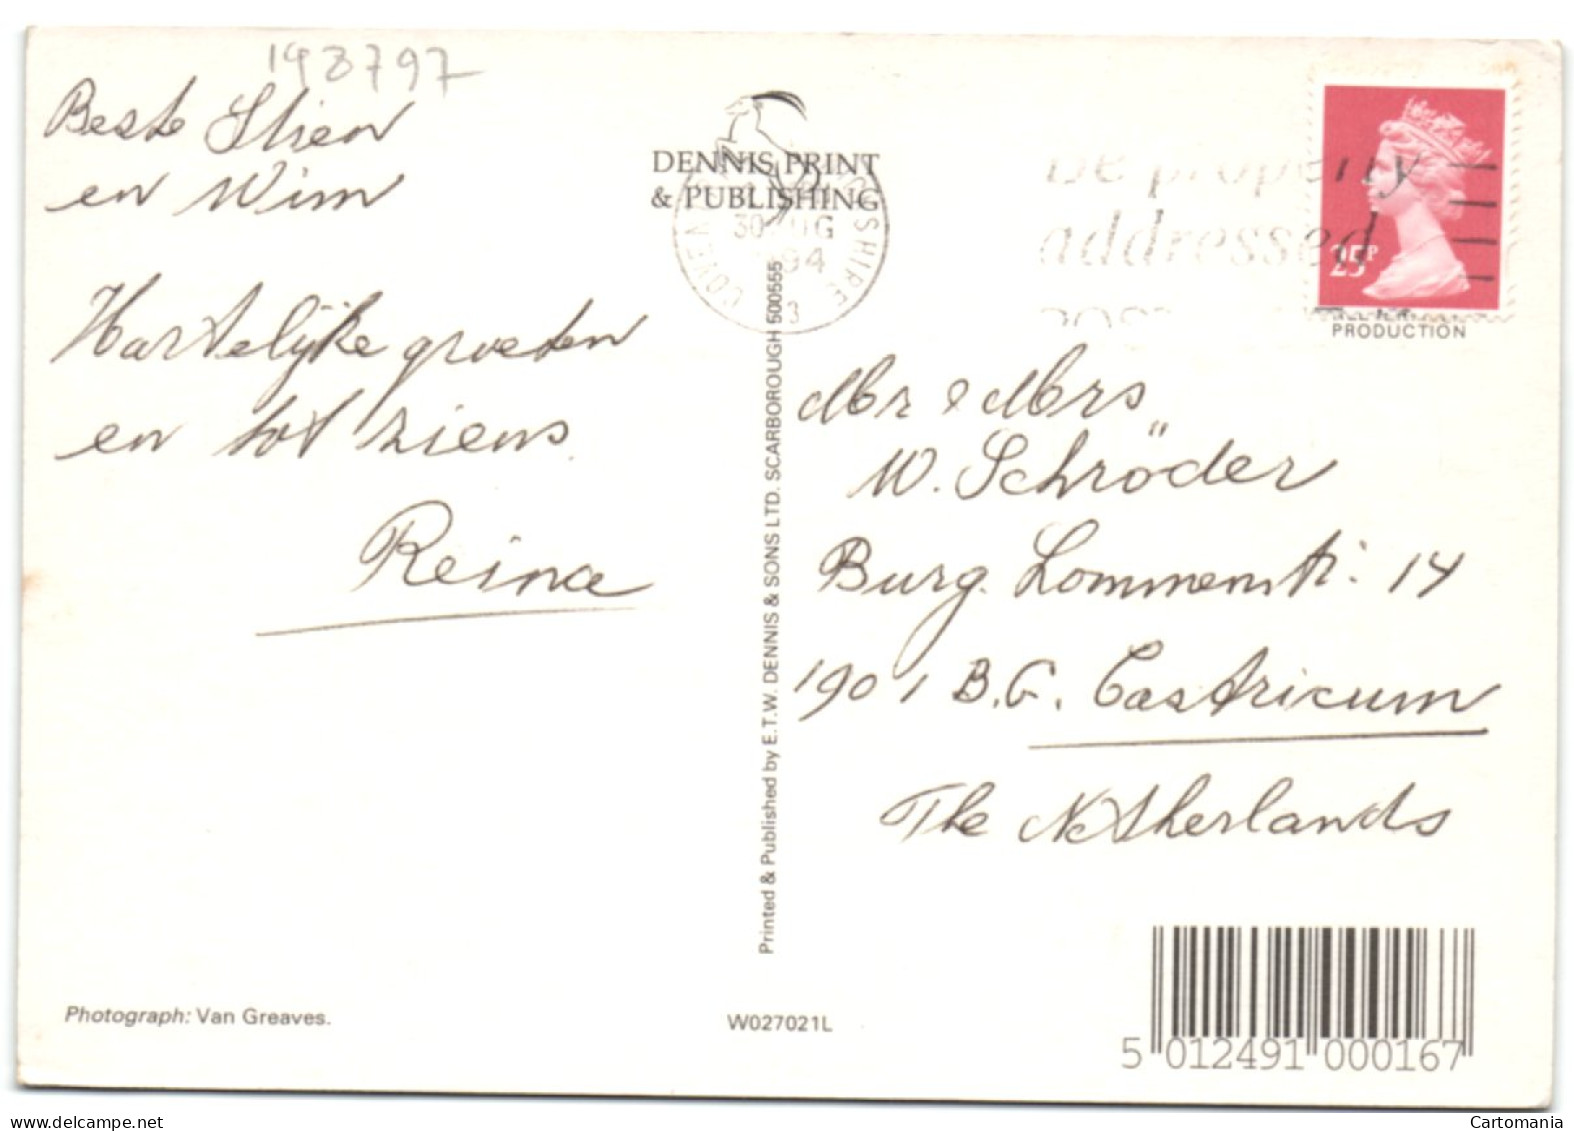 198797
Beste Stien
en Wim
Hartelijke groeten
en tot ziens.
Reina
DENNIS PRINT
& PUBLISHING
30 AUG
1994
3
Be properly
addressed
25P
PRODUCTION
Mr & Mrs
W. Schröder
Burg. Lommenstr. 14
1901 B.G. Castricum
The Netherlands
Printed & Published by E.T.W. DENNIS & SONS LTD. SCARBOROUGH 500555
Photograph: Van Greaves.
W027021L
5 012491 000167
Cartomania